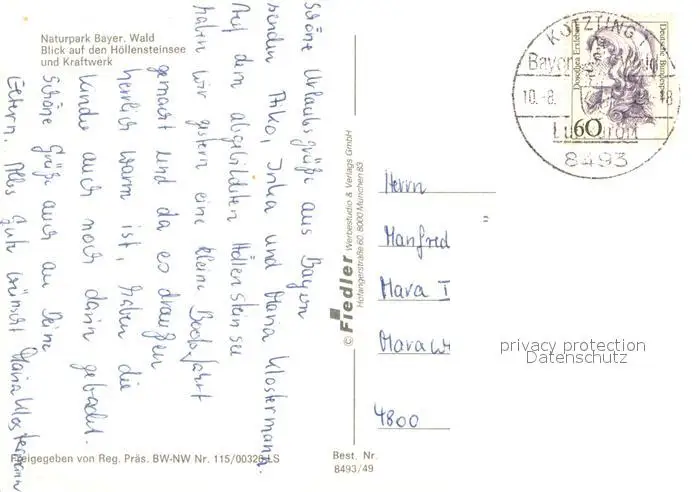 Naturpark Bayer. Wald
Blick auf den Höllensteinsee
und Kraftwerk
Schöne Urlaubsgrüße aus Bayern
senden Inka und Maria Klostermann.
Auf dem abgebildeten Höllensteinsee
haben wir gestern eine kleine Bootsfahrt
gemacht und da es draußen
herrlich warm ist, haben die
Kinder auch noch darin gebadet.
Schöne Grüße auch an Deine
Eltern. Alles Gute wünscht Maria Klostermann
Freigegeben von Reg. Präs. BW-NW Nr. 115/00326 LS
© Fiedler Werbestudio & Verlags GmbH
Hofangerstraße 60, 8000 München 83
Best. Nr.
8493/49
KÖTZTING
Bayer
10.-8.
-18
Luftkurort
8493
Dorothea Erxleben
Deutsche Bundespost
60
Herrn
Manfred
4800
privacy protection
Datenschutz